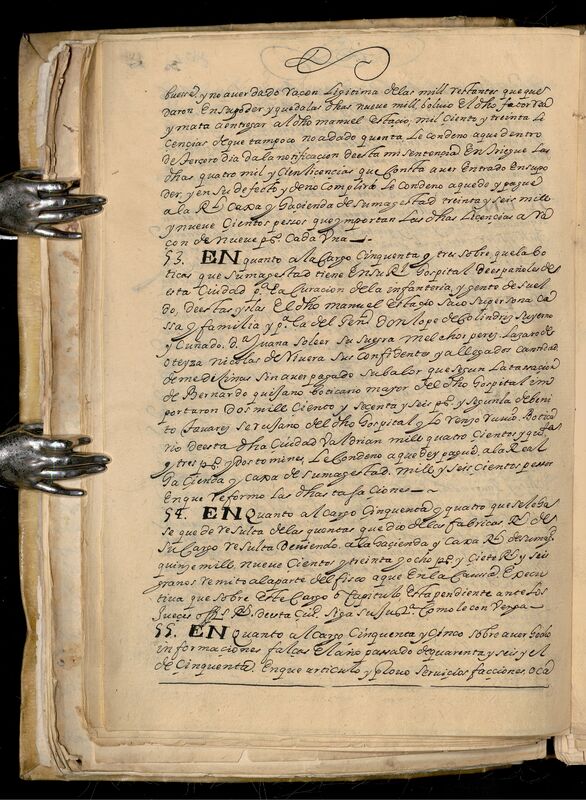 buerse, y no aver dado racon lixitima de las mill restantes que que
daron En su poder y que da las dhas nueve mill, bolvio El dho factor vea
y mata a entregar al dho manuel estaçio, mil ciento y treinta li
cencias de que tampoco no a dado quenta Le condeno a que dentro
de terçero dia da la notificacion de esta mi sentencia Entriegue Las
dhas quatro mil y cien licencias que consta aver Entrado En su po
der, y en su defecto y de no complirlo Le condeno a que de y pague
a la Rl Caxa y haçienda de su magestad treinta y seis mill
y nueve cientos pesos que ymportan Las dhas Licencias a Ra
con de nueve ps. Cada Una
53. EN quanto al Cargo Cinquenta y tres sobre que la bo
tica que su magestad tiene En su Rl hospital de españoles de
esta Ciudad pa. La Curacion de la infanteria, y gente de suel
do, de estas yslas El dho manuel Estaçio Saco su persona ca
ssa y familia y pa. la del Genl Don lope de Colindres su yerno
y Cuñado, da. Juana Soleer su suegra melchor perez, Lazaro de
oteyza nicolas de Rivera sus confidentes y allegados cantidad
de medeçinas sin aver pagado su balor que segun La tasacion
de Bernardo quesano boticario mayor del dho hospital im
portaron dos mill Ciento y Secenta y seis ps. y segun la de beni
to tavares çerujano del dho hospital y Lorenço Botica
rio de esta dha Ciudad Valdrian mill quatro Cientos y
y tres ps. y dos tomines, Le condeno a que de y pague, a la Real
haçienda y caxa de su magestad. mill y seis cientos pesos
En que reformo Las dhas tasaciones
54. EN quanto al Cargo Cinquenta y quatro que se le ha
se que de resulta de las quentas que dio de las fabricas Rs. de
su Cargo resulta Deviendo, a la haçienda y Caxa Rl de su magd
quinze mill, nueve Cientos y treinta y ocho ps. y Ciete Rs. y seis
granos remito a la parte del fisco a que En la Caussa Execu
tiva que sobre Este Cargo o Capitulo Esta pendiente ante Los
Jueces offs. Rs. de esta Ciud. Siga su Justa. Como le con Venga
55. EN quanto al Cargo Cinquenta y çinco sobre aver hecho
informaciones falcas El año passado de quarenta y seis y el
de Cinquenta. En que articulo y provo serviçios facciones, o ca